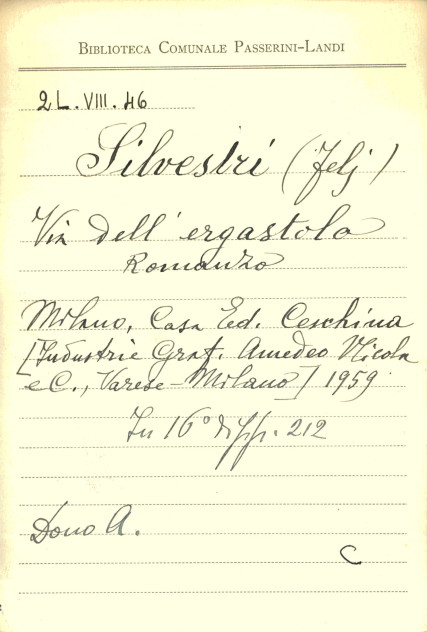 BIBLIOTECA COMUNALE PASSERINI-LANDI
2L.VIII.46
Silvestri (Felj)
Via dell'ergastolo
Romanzo
Milano, Casa Ed. Ceschina
[Industrie Graf. Amedeo Nicola
e C., Varese-Milano] 1959
In 16° di pp. 212
Dono A.
C